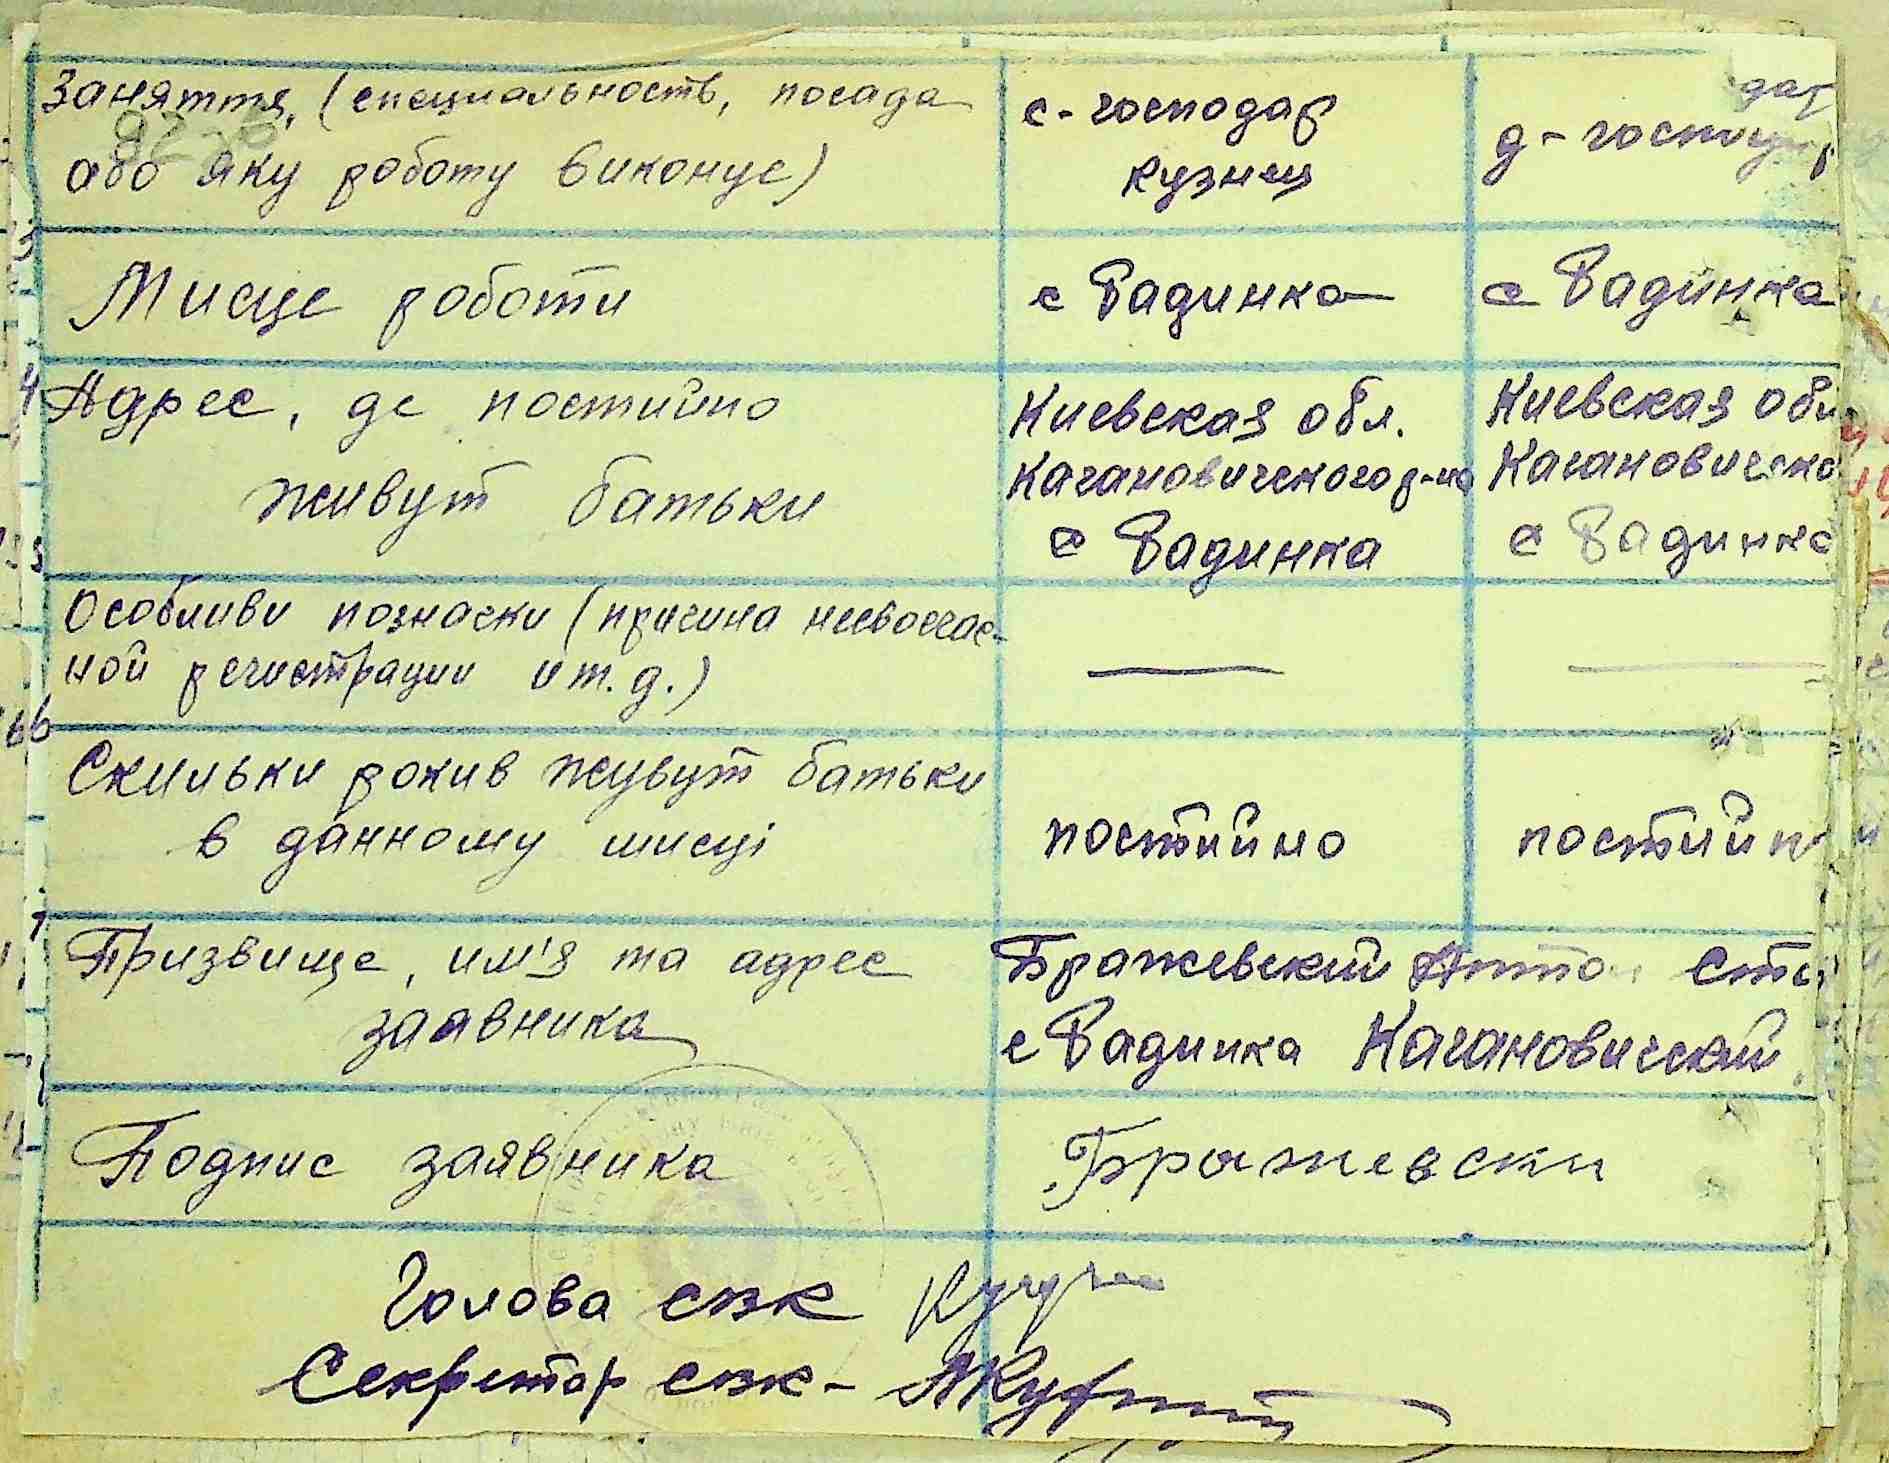 Заняття, (специальность, посада
або яку роботу виконує)
с-господар
кузнец
д-господар
Мисце роботи
с Радинка
с Радинка
Адрес, де постийно
живут батьки
Киевская обл.
Кагановичского р-на
с Радинка
Киевская обл
Кагановичско
с Радинка
Особливи позначки (причина несвоєчас-
ной регистрации и т.д.)
Скильки рокив живут батьки
в данному мисці
постийно
постийн
Призвище, им'я та адрес
заявника
Бражевский Антон Ст
с Радинка Кагановический
Подпис заявника
Бражевски
Голова свк
Секретар свк -